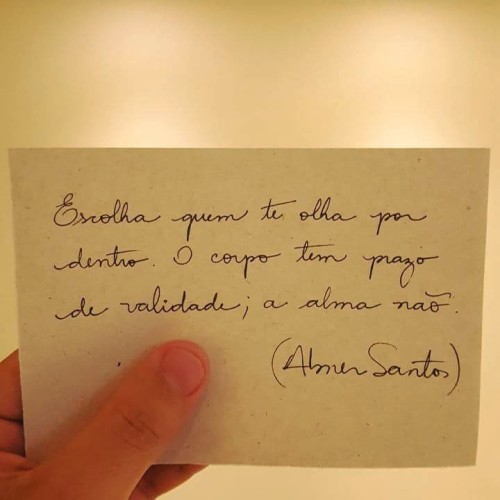 Escolha quem te olha por
dentro. O corpo tem prazo
de validade; a alma não.
(Abner Santos)